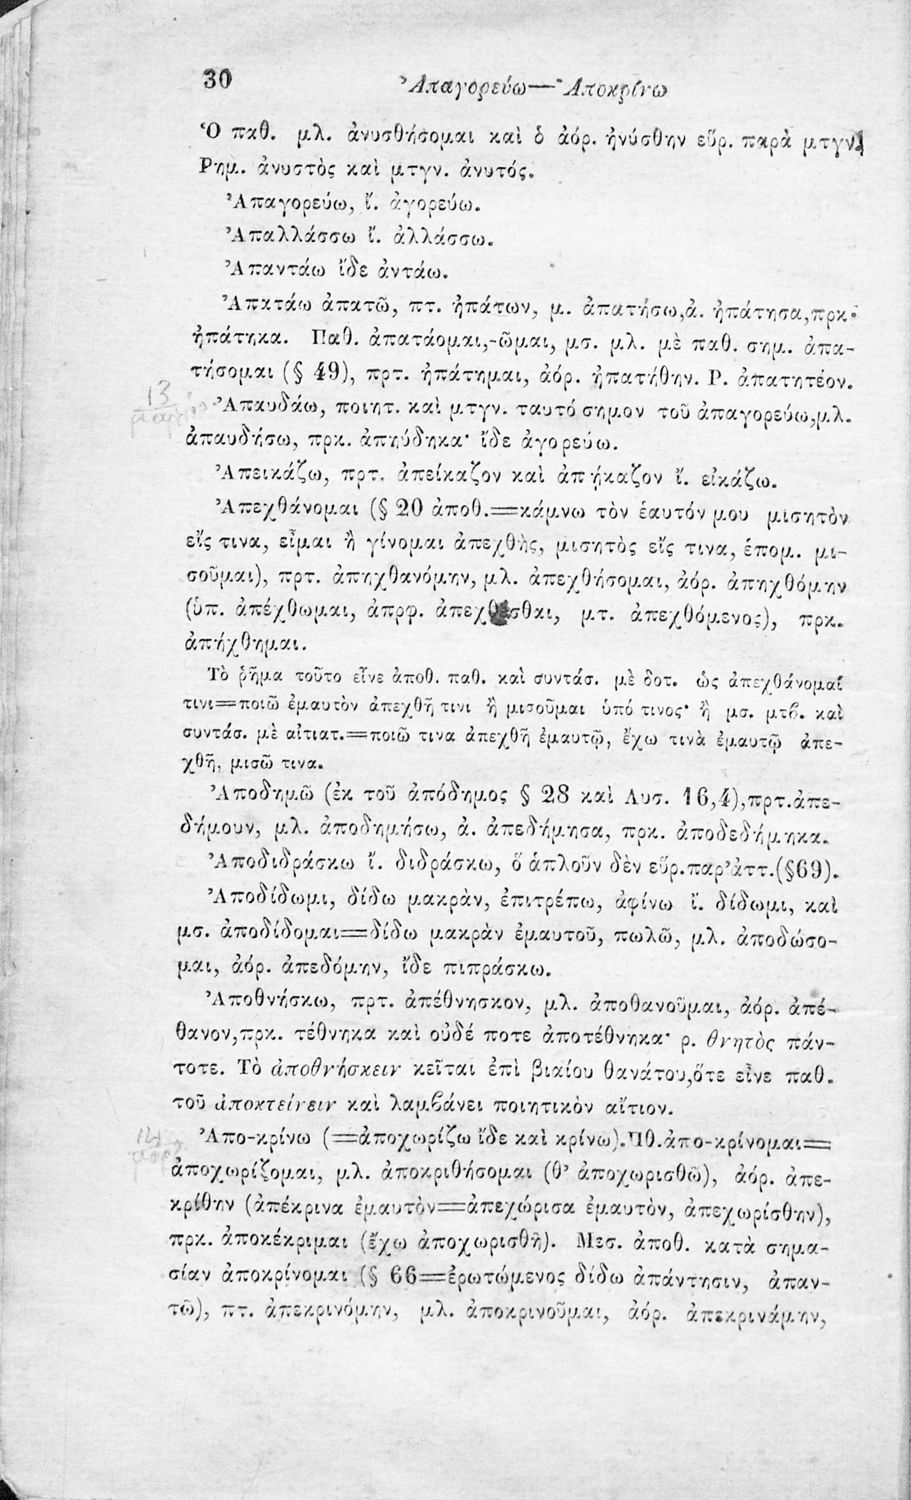 30 Ἀπαγορεύω—Ἀποκρίνω
Ὁ παθ. μλ. ἀνυσθήσομαι καὶ ὁ ἀόρ. ἠνύσθην εὕρ. παρὰ μτγν.
Ρημ. ἀνυστὸς καὶ μτγν. ἀνυτός.
Ἀπαγορεύω, ἴ. ἀγορεύω.
Ἀπαλλάσσω ἴ. ἀλλάσσω.
Ἀπαντάω ἴδε ἀντάω.
Ἀπατάω ἀπατῶ, πτ. ἠπάτων, μ. ἀπατήσω,ἀ. ἠπάτησα,πρκ.
ἠπάτηκα. Παθ. ἀπατάομαι,-ῶμαι, μσ. μλ. μὲ παθ. σημ. ἀπα-
τήσομαι (§ 49), πρτ. ἠπάτημαι, ἀόρ. ἠπατήθην. Ρ. ἀπατητέον.
13
Ἀπαυδάω, ποιητ. καὶ μτγν. ταυτόσημον τοῦ ἀπαγορεύω,μλ.
ἀπαυδήσω, πρκ. ἀπηύδηκα· ἴδε ἀγορεύω.
Ἀπεικάζω, πρτ. ἀπείκαζον καὶ ἀπήκαζον ἴ. εἰκάζω.
Ἀπεχθάνομαι (§ 20 ἀποθ.=κάμνω τὸν ἑαυτόν μου μισητὸν
εἴς τινα, εἶμαι ἢ γίνομαι ἀπεχθὴς, μισητὸς εἴς τινα, ἑπομ. μι-
σοῦμαι), πρτ. ἀπηχθανόμην, μλ. ἀπεχθήσομαι, ἀόρ. ἀπηχθόμην
(ὑπ. ἀπέχθωμαι, ἀπρφ. ἀπεχθέσθαι, μτ. ἀπεχθόμενος), πρκ.
ἀπήχθημαι.
Τὸ ῥῆμα τοῦτο εἶνε ἀποθ. παθ. καὶ συντάσ. μὲ δοτ. ὡς ἀπεχθάνομαί
τινι=ποιῶ ἐμαυτὸν ἀπεχθῆ τινι ἢ μισοῦμαι ὑπό τινος· ἢ μσ. μτβ. καὶ
συντάσ. μὲ αἰτιατ.=ποιῶ τινα ἀπεχθῆ ἐμαυτῷ, ἔχω τινὰ ἐμαυτῷ ἀπε-
χθῆ, μισῶ τινα.
Ἀποδημῶ (ἐκ τοῦ ἀπόδημος § 28 καὶ Λυσ. 16,4),πρτ.ἀπε-
δήμουν, μλ. ἀποδημήσω, ἀ. ἀπεδήμησα, πρκ. ἀποδεδήμηκα.
Ἀποδιδράσκω ἴ. διδράσκω, ὅ ἁπλοῦν δὲν εὕρ.παρ’ἀττ.(§69).
Ἀποδίδωμι, δίδω μακρὰν, ἐπιτρέπω, ἀφίνω ἴ. δίδωμι, καὶ
μσ. ἀποδίδομαι=δίδω μακρὰν ἐμαυτοῦ, πωλῶ, μλ. ἀποδώσο-
μαι, ἀόρ. ἀπεδόμην, ἴδε πιπράσκω.
Ἀποθνήσκω, πρτ. ἀπέθνησκον, μλ. ἀποθανοῦμαι, ἀόρ. ἀπέ-
θανον,πρκ. τέθνηκα καὶ οὐδέ ποτε ἀποτέθνηκα· ρ. θνητὸς πάν-
τοτε. Τὸ ἀποθνήσκειν κεῖται ἐπὶ βιαίου θανάτου,ὅτε εἶνε παθ.
τοῦ ἀποκτείνειν καὶ λαμβάνει ποιητικὸν αἴτιον.
14
Ἀπο-κρίνω (=ἀποχωρίζω ἴδε καὶ κρίνω).Πθ.ἀπο-κρίνομαι=
ἀποχωρίζομαι, μλ. ἀποκριθήσομαι (θ’ ἀποχωρισθῶ), ἀόρ. ἀπε-
κρίθην (ἀπέκρινα ἐμαυτὸν=ἀπεχώρισα ἐμαυτὸν, ἀπεχωρίσθην),
πρκ. ἀποκέκριμαι (ἔχω ἀποχωρισθῆ). Μεσ. ἀποθ. κατὰ σημα-
σίαν ἀποκρίνομαι (§ 66=ἐρωτώμενος δίδω ἀπάντησιν, ἀπαν-
τῶ), πτ. ἀπεκρινόμην, μλ. ἀποκρινοῦμαι, ἀόρ. ἀπεκρινάμην,